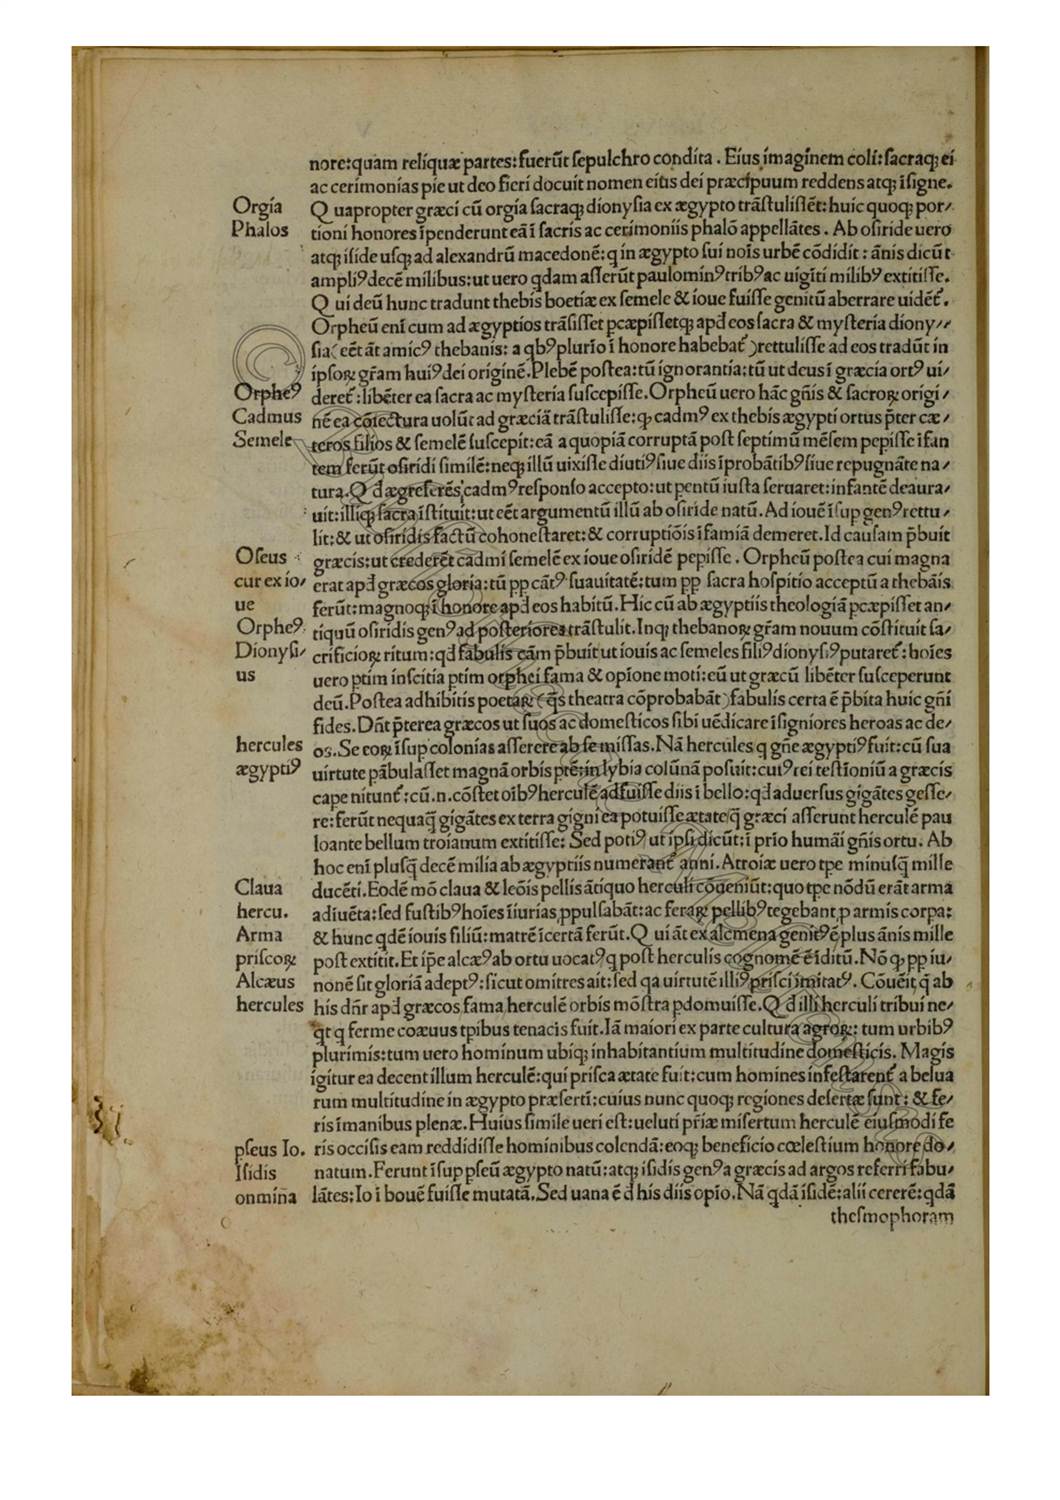 nore:quam reliquæ partes:fuerũt ſepulchro condita . Eius imaginem coli:ſacraq; ei
ac cerimonias pie ut deo fieri docuit nomen eius dei præcipuum reddens atq; ĩſigne.
Orgia
Q uapropter græci cũ orgia ſacraq; dionyſia ex ægypto trãſtuliſſẽt: huic quoq; por⸗
Phalos
tioni honores ĩpenderunt eã ĩ ſacris ac cerimoniis phalõ appellãtes . Ab oſiride uero
atq; iſide uſq; ad alexandrũ macedonẽ: q in ægypto ſui nois urbẽ cõdidit : ãnis dicũt
ampliꝰ decẽ milibus: ut uero qdam aſſerũt paulominꝰ tribꝰ ac uigĩti milibꝰ extitiſſe.
Q ui deũ hunc tradunt thebis boetiæ ex ſemele & ioue fuiſſe genitũ aberrare uidẽt̃.
Orpheũ eni cum ad ægyptios trãſiſſet pcæpiſſetq; apđ eos ſacra & myſteria diony⸗
ſia(eẽt ãt amicꝰ thebanis: a qbꝰ plurio ĩ honore habebat̃ )rettuliſſe ad eos tradũt in
ipſoꝝ gr̃am huiꝰ dei originẽ. Plebẽ poſtea: tũ ignorantia: tũ ut deus ĩ græcia ortꝰ ui⸗
Orpheꝰ
deret̃: libẽter ea ſacra ac myſteria ſuſcepiſſe. Orpheũ uero hãc gñis & ſacroꝝ origi⸗
Cadmus
nẽ ea cõiectura uolũt ad græciã trãſtuliſſe: ꝙ cadmꝰ ex thebis ægypti ortus p̃ter cæ⸗
Semele
teros filios & ſemelẽ ſuſcepit: eã a quopiã corruptã poſt ſeptimũ mẽſem pepiſſe ĩfan
tem ferũt oſiridi ſimilẽ: neq; illũ uixiſſe diutiꝰ ſiue diis ĩprobãtibꝰ ſiue repugnãte na⸗
tura. Q đ ægreferẽs cadmꝰ reſponſo accepto: ut pentũ iuſta ſeruaret: infantẽ deaura⸗
uit: illiq; ſacra ĩſtituit: ut eẽt argumentũ illũ ab oſiride natũ. Ad iouẽ ĩſup genꝰ rettu⸗
lit: & ut oſiridis factũ cohoneſtaret: & corruptiõis ĩfamiã demeret. Id cauſam p̃buit
Oſeus
græcis: ut crederẽt cadmi ſemelẽ ex ioue oſiridẽ pepiſſe . Orpheũ poſtea cui magna
cur ex io⸗
erat apđ græcos gloria: tũ pp cãtꝰ ſuauitatẽ: tum pp ſacra hoſpitio acceptũ a thebãis
ue
ferũt: magnoq; ĩ honore apđ eos habitũ. Hic cũ ab ægyptiis theologiã pcæpiſſet an⸗
Orpheꝰ
tiquũ oſiridis genꝰ ad poſteriores trãſtulit. Inq; thebanoꝝ gr̃am nouum cõſtituit ſa⸗
Dionyſi⸗
crificioꝝ ritum: qđ fabulis eãm p̃buit ut iouis ac ſemeles filiꝰ dionyſiꝰ putaret̃: hoies
us
uero ptim inſcitia ptim orphei fama & opione moti: eũ ut græcũ libẽter ſuſceperunt
deũ. Poſtea adhibitis poetaꝝ ( q̃s theatra cõprobabãt )fabulis certa ẽ p̃bita huic gñi
fides. Dñt p̃terea græcos ut ſuos ac domeſticos ſibi uẽdicare ĩſigniores heroas ac de⸗
hercules
os. Se eoꝝ ĩſup colonias aſſerere ab ſe miſſas. Nã hercules q gñe ægyptiꝰ fuit: cũ ſua
ægyptiꝰ
uirtute pãbulaſſet magnã orbis ptẽ: in lybia colũnã poſuit: cuiꝰ rei teſtioniũ a græcis
cape nitunt̃: cũ.n.cõſtet oibꝰ herculẽ adfuiſſe diis ĩ bello: qđ aduerſus gigãtes geſſe⸗
re: ferũt nequaq̃ gigãtes ex terra gigni ea potuiſſe ætate q̃ græci aſſerunt herculẽ pau
loante bellum troianum extitiſſe: Sed potiꝰ ut ipſi dicũt: ĩ prio humãi gñis ortu. Ab
hoc eni pluſq̃ decẽ milia ab ægyptiis numerant̃ anni. A troiæ uero tpe minuſq̃ mille
Claua
ducẽti. Eodẽ mõ claua & leõis pellis ãtiquo herculi cõueniũt: quo tpe nõdũ erãt arma
hercu.
adiuẽta: ſed fuſtibꝰ hoies ĩiurias ppulſabãt: ac feraꝝ pellibꝰ tegebant p armis corpa:
Arma
& hunc qdẽ iouis filiũ: matrẽ ĩcertã ferũt. Q ui ãt ex alcmena genitꝰ ẽ plus ãnis mille
priſcoꝝ
poſt extitit. Et ip̃e alcæꝰ ab ortu uocatꝰ q poſt herculis cognomẽ ẽ ĩditũ. Nõ ꝙ pp iu⸗
Alcæus
nonẽ ſit gloriã adeptꝰ: ſicut omitres ait: ſed qa uirtutẽ illiꝰ priſci imitatꝰ. Cõuẽit q̃ ab
hercules
his dñr apđ græcos fama herculẽ orbis mõſtra pdomuiſſe. Q đ illi herculi tribui ne⸗
qt q ferme coæuus tpibus tenacis fuit. Iã maiori ex parte cultura agroꝝ: tum urbibꝰ
plurimis: tum uero hominum ubiq; inhabitantium multitudine domeſticis. Magis
igitur ea decent illum herculẽ: qui priſca ætate fuit: cum homines infeſtarent̃ a belua
rum multitudine in ægypto præſerti: cuius nunc quoq; regiones deſertæ ſunt: & fe⸗
ris ĩmanibus plenæ. Huius ſimile ueri eſt: ueluti pr̃iæ miſertum herculẽ eiuſmodi fe
pſeus Io.
ris occiſis eam reddidiſſe hominibus colendã: eoq; beneficio cœleſtium honore do⸗
Iſidis
natum. Ferunt ĩſup pſeũ ægypto natũ: atq; iſidis genꝰ a græcis ad argos referri fabu⸗
onmiña
lãtes: Io ĩ bouẽ fuiſſe mutatã. Sed uana ẽ đ his diis opio. Nã qdã iſidẽ: alii cererẽ: qdã
theſmophoram